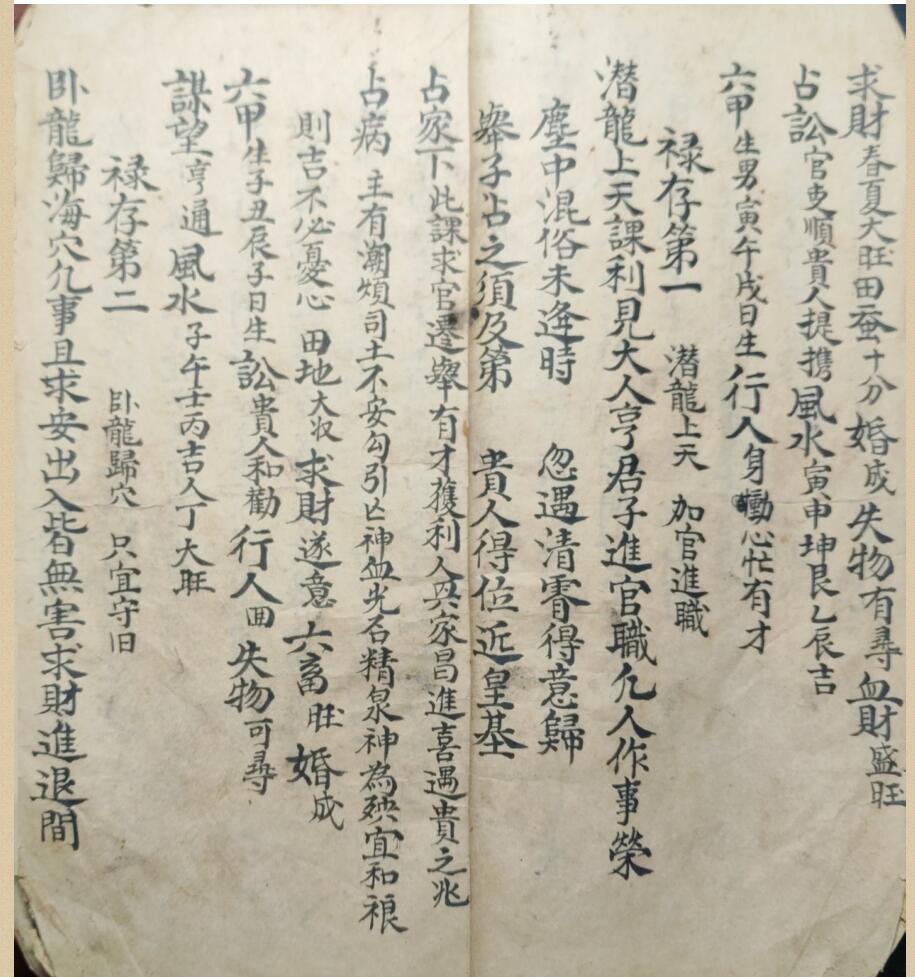 求財春夏大旺田蚕十分婚成失物有尋血財盛旺
占訟官吏順貴人提携風水寅申坤艮乙辰吉
六甲生男寅午戌日生行人身動心忙有才
禄存第一 潜龍上天 加官進職
潜龍上天課利見大人亨君子進官職凢人作事榮
塵中混俗未逢時 忽遇清霄得意歸
舉子占之須及第 貴人得位近皇基
占家下此課求官遷舉有才獲利人興家昌進喜遇貴之兆
占病主有潮煩司土不安勾引亡神血光石精泉神為殃宜和禳
則吉不必憂心田地大收求財遂意六畜旺婚成
六甲生子丑辰子日生訟貴人和勸行人囬失物可尋
謀望亨通風水子午壬丙吉人丁大旺
禄存第二 卧龍歸穴 只宜守旧
卧龍歸海穴凢事且求安出入皆無害求財進退間